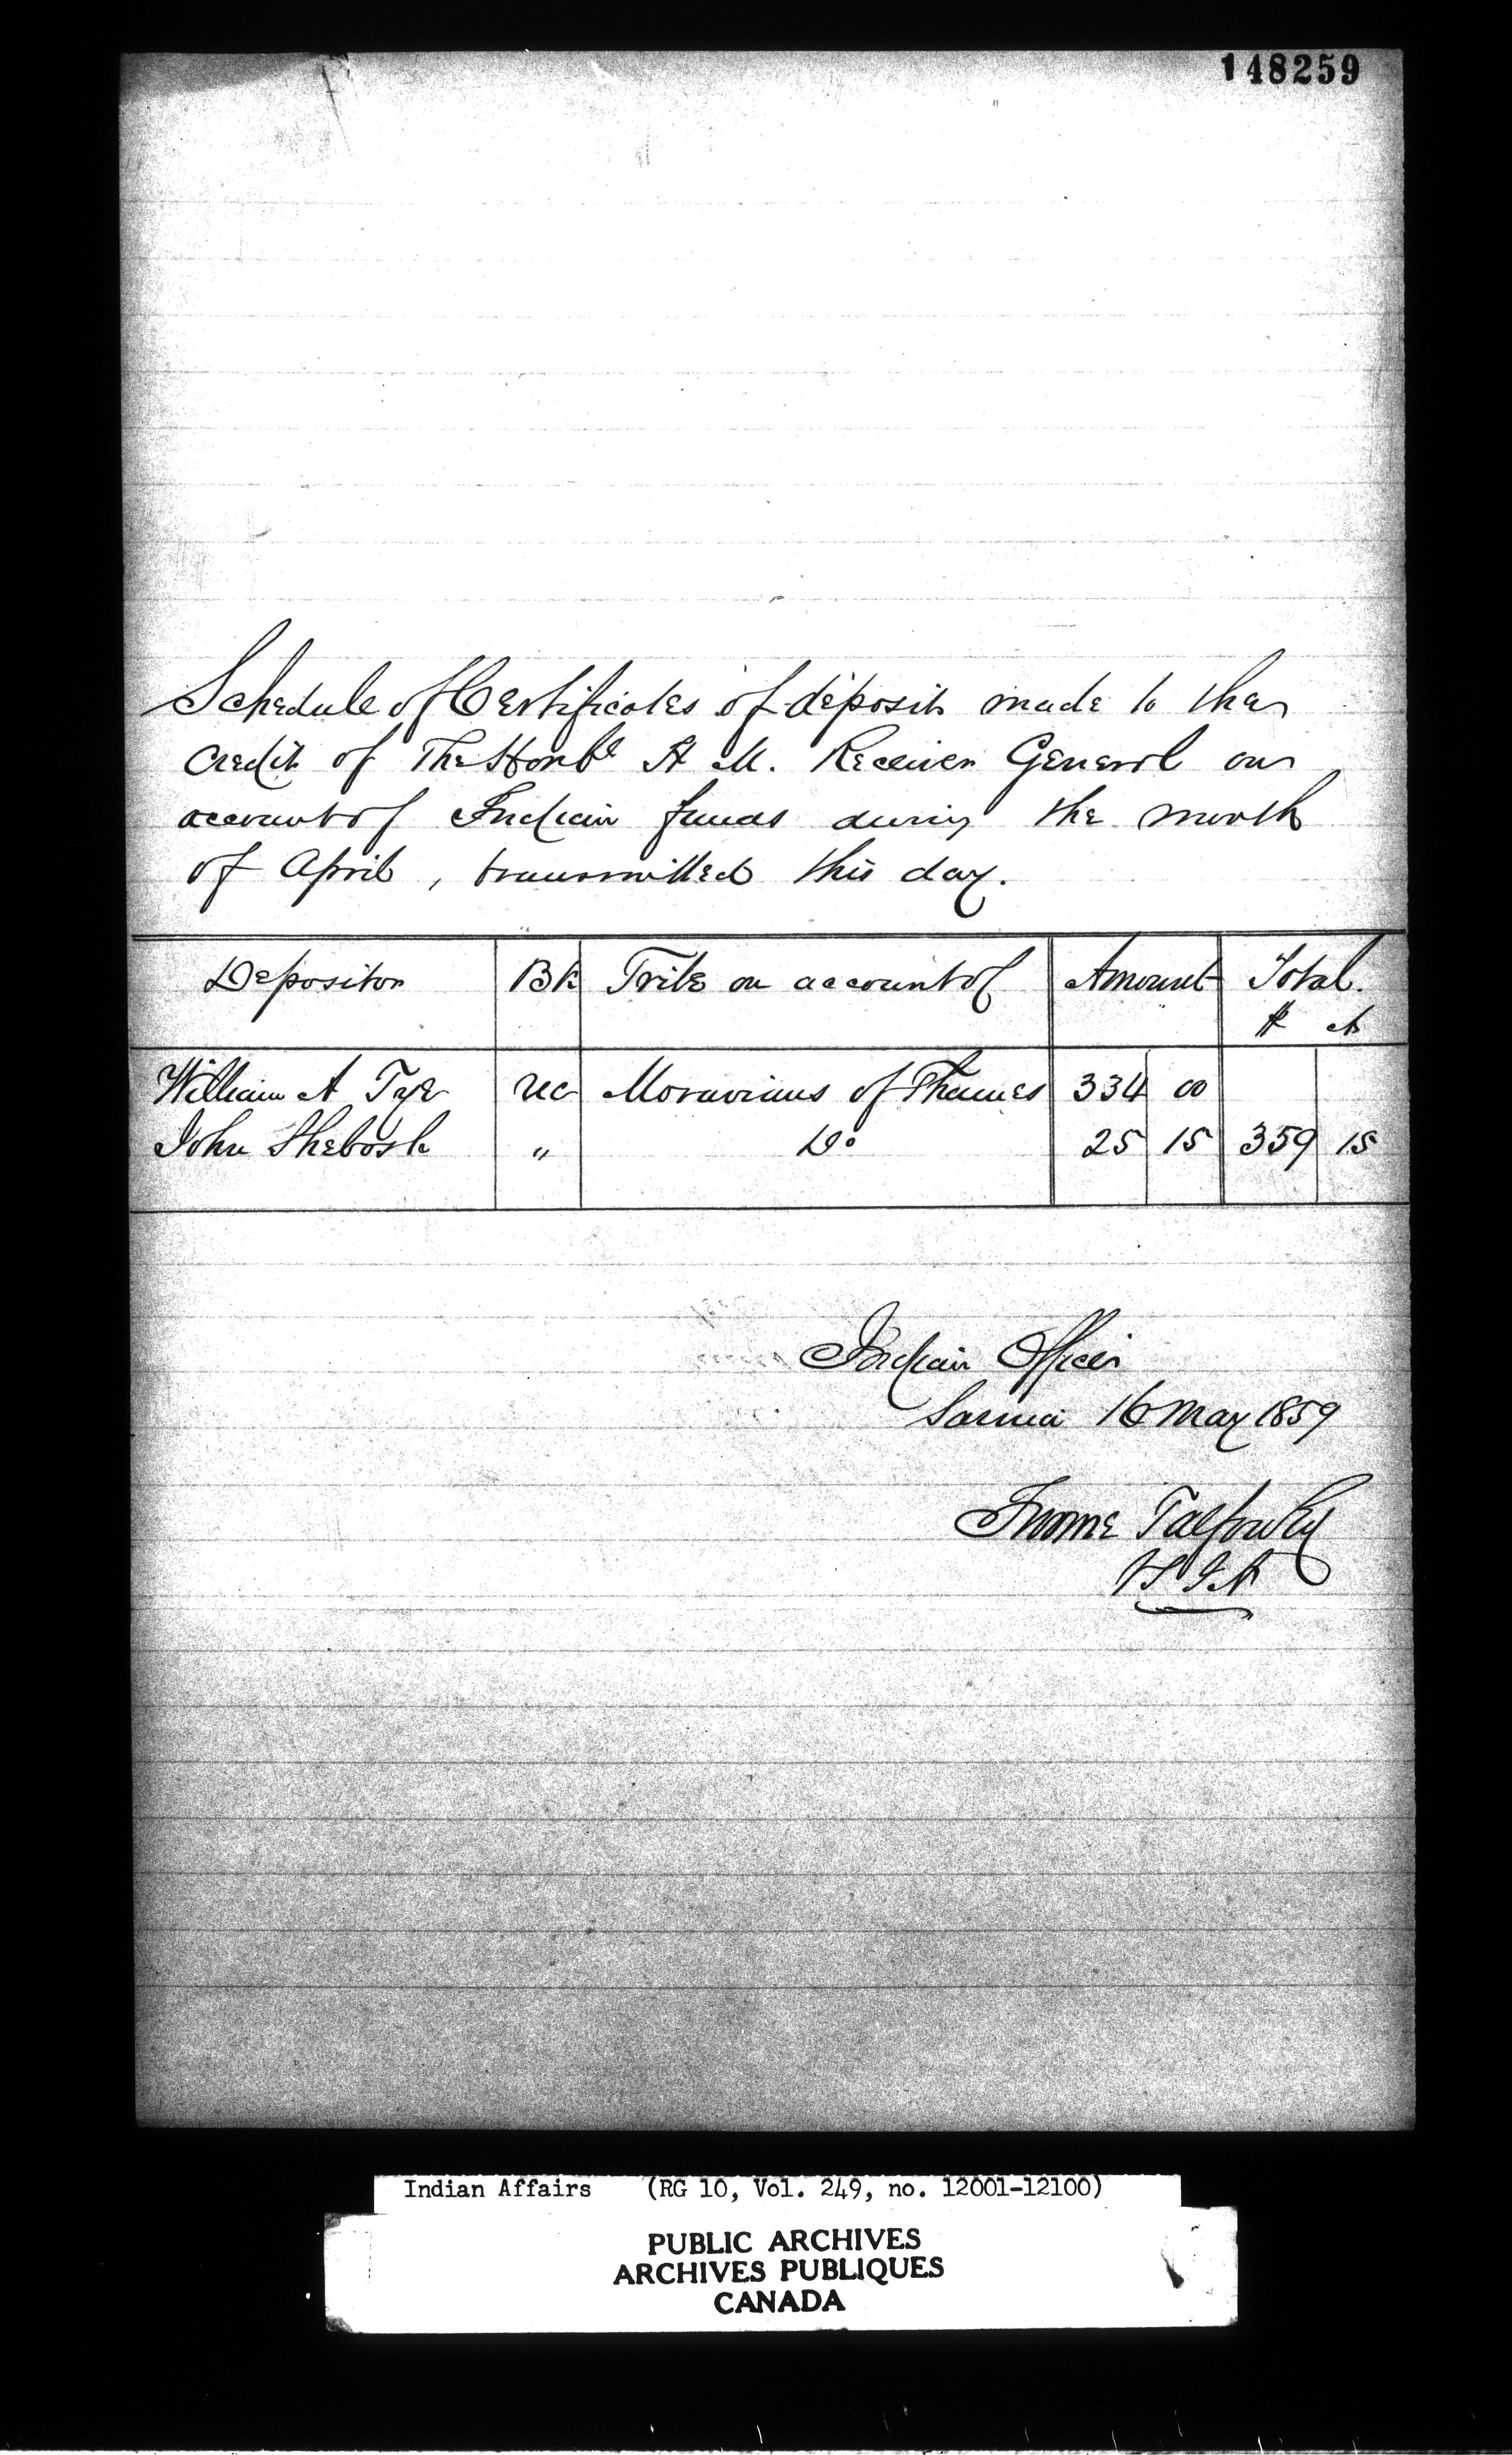 148259
Schedule of Certificates of deposit made to the
credit of The Honble H M. Receiver General on
account of Indian funds during the month
of April, transmitted this day.
Depositor Bk Tribe on account of Amount Total.
$ cts
William A Tye UC Moravians of Thames 334 00
John Shebosh " Do 25 15 359 15
Indian Office
Sarnia 16 May 1859
Froome Talfourd
V S I A
Indian Affairs (RG 10, Vol. 249, no. 12001-12100)
PUBLIC ARCHIVES
ARCHIVES PUBLIQUES
CANADA